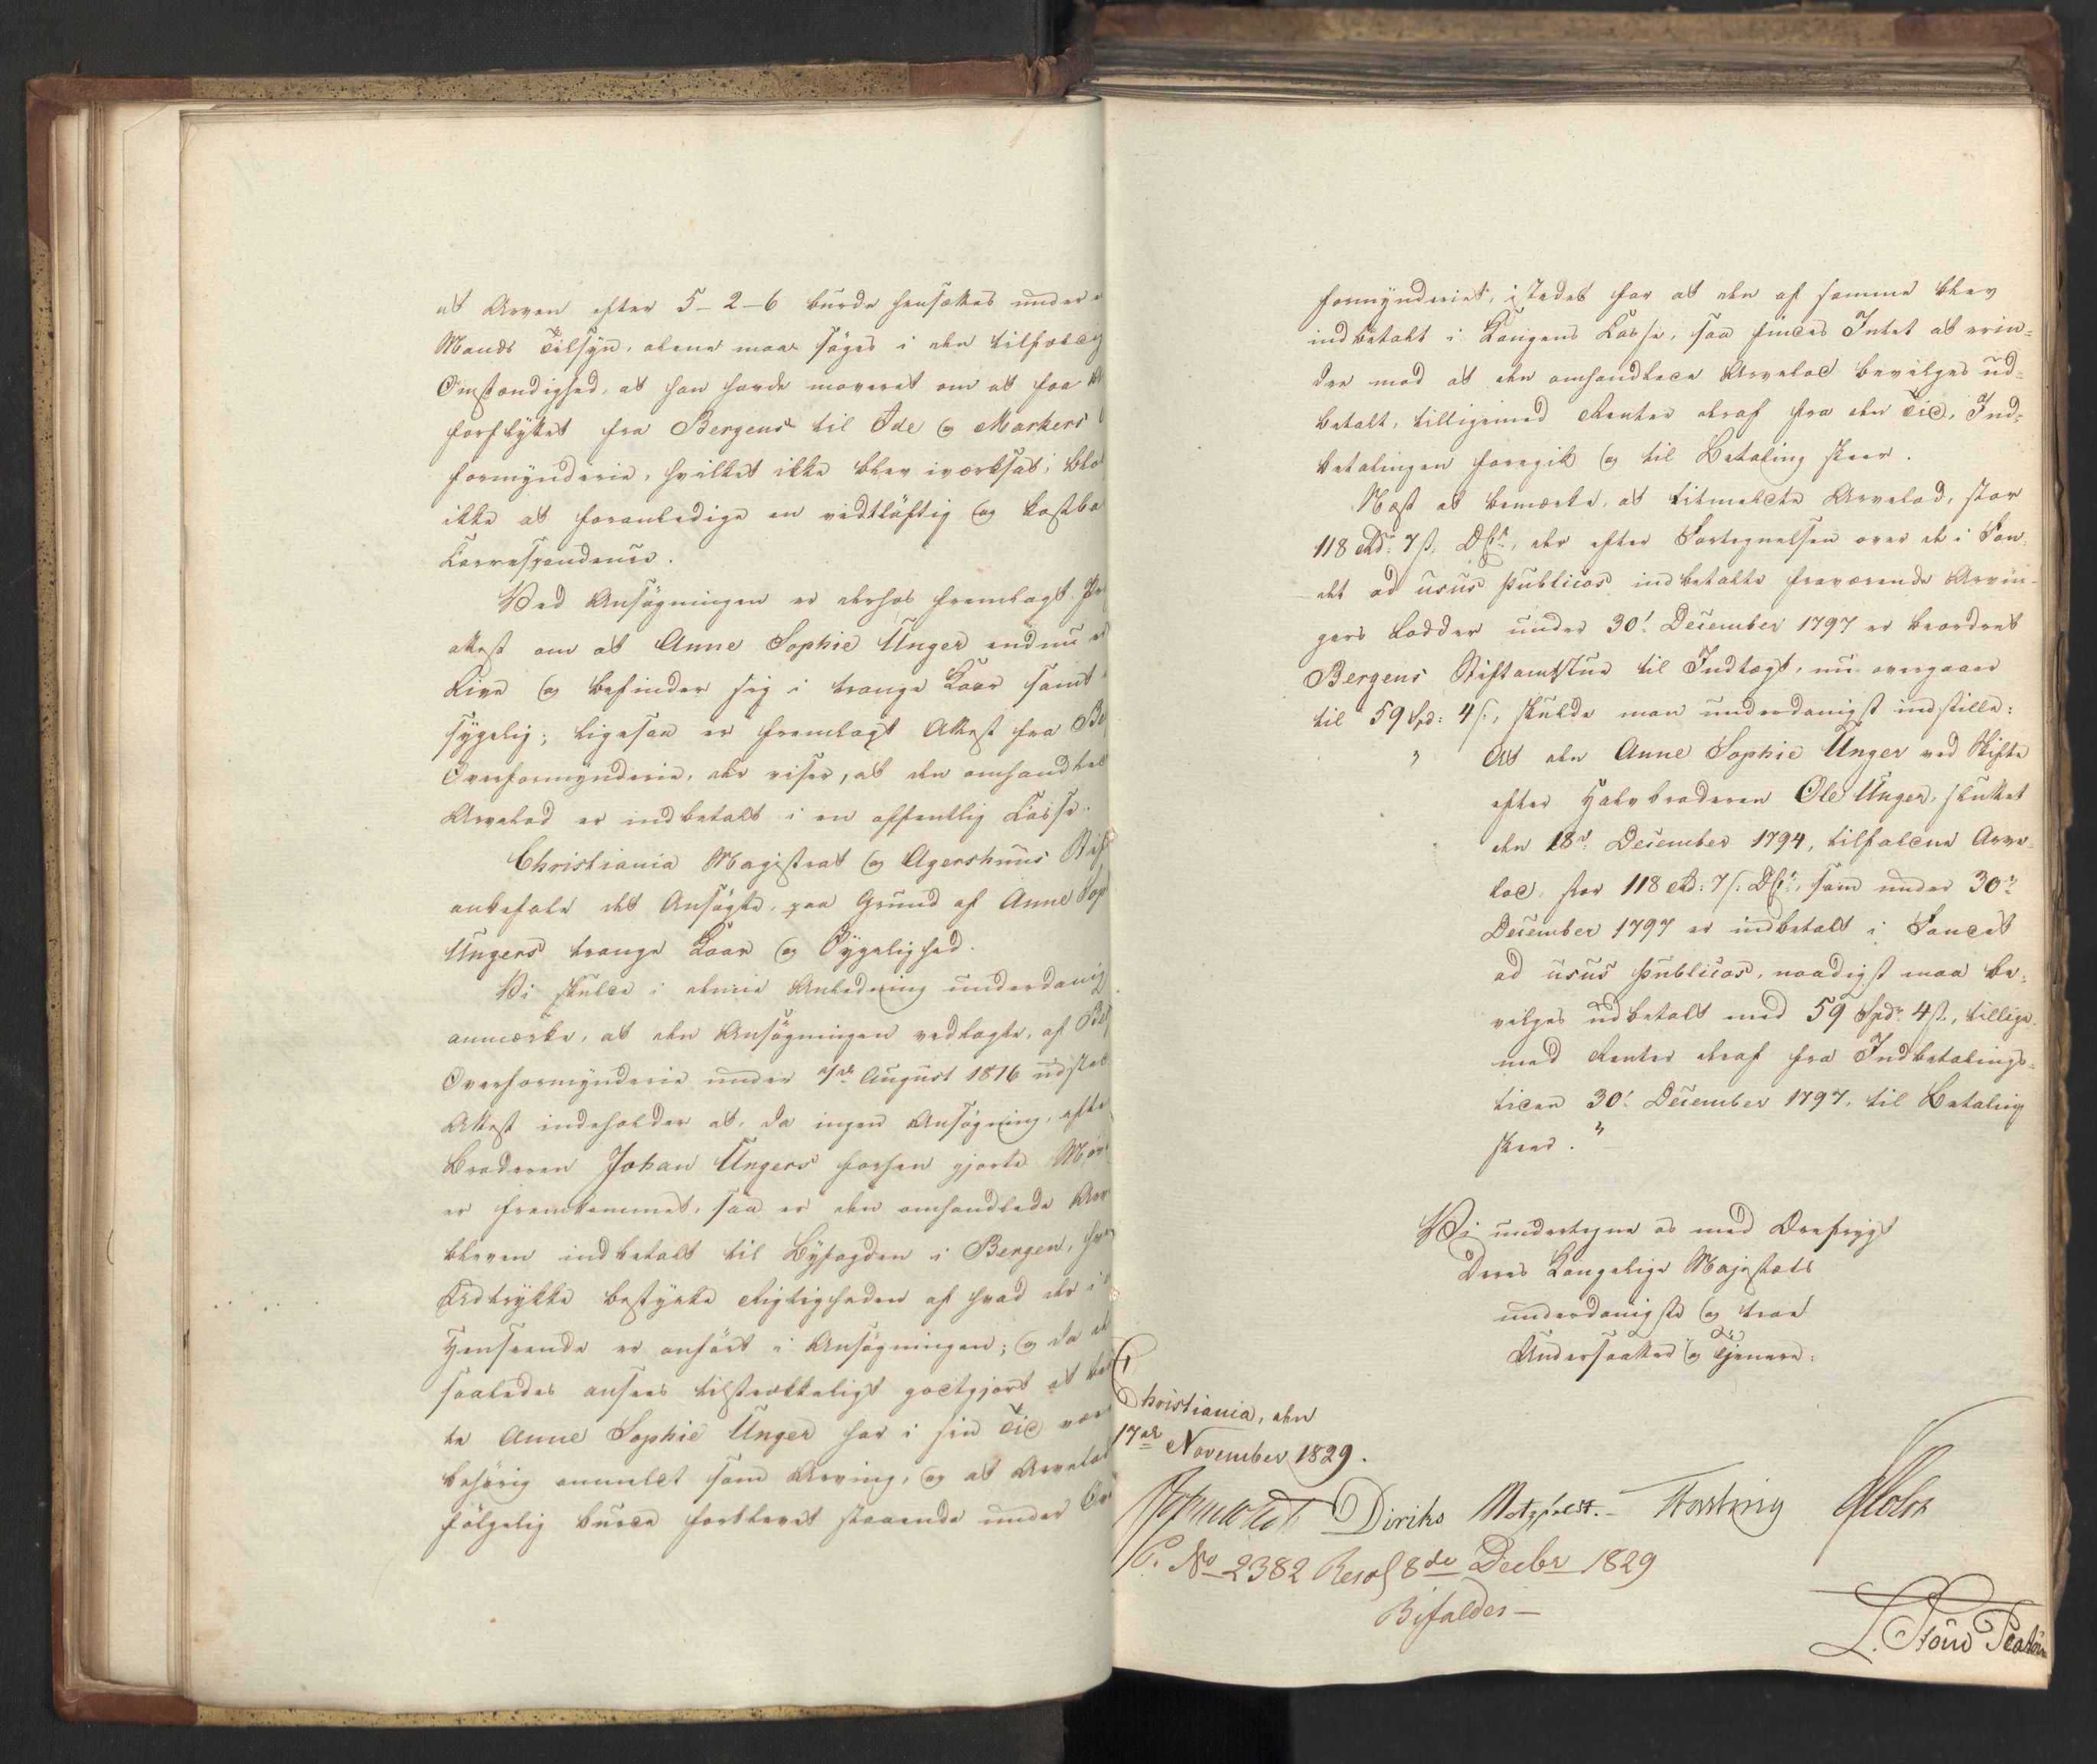 at Arven efter 5-2-6 burde hensættes under
Mands Tilsyn, alene maa søges i den tilfældig
Omstændighed, at han havde moveret om at faa
forflyttet fra Bergens til Ide og Markers
formynderie, hvilket ikke blev iværksat,
ikke at foranledige en vidtløftig og kostba
Correspondence.
Ved Ansøgningen er derhos fremlagt
Attest om at Anne Sophie Unger endnu er
Live og befinder sig i trange Kaar samt
sygelig; ligesaa er fremlagt Attest fra Be
Overformynderie, der viser, at den omhandlede
Arvelod er indbetalt i en offentlig Casse.
Christiania Magistrat og Agershuus Stif
anbefale det Ansøgte, paa Grund af Anne Sop
Ungers trange Kaar og Sygelighed.
Vi skulde i denne Anledning underdanig
anmærke, at den Ansøgningen vedlagte, af Ber
Overformynderie under August 1816 udsted
Attest indeholder at, da ingen Ansøgning, efter
Broderen Johan Ungers forhen gjorte
er fremkommet, saa er den omhandlede Arv
bleven indbetalt til Byfogden i Bergen,
Udtrykke bestyrke Rigtigheden af hvad der i
Henseende er anført i Ansøgningen; og da
saaledes ansees tilstrækkeligt godtgjort at
te Anne Sophie Unger har i sin Tid vær
behørig anmeldt som Arving, og at Arvelod
følgelig burde forblevet staaende under Ov
formynderiet, istedet for at den af samme blev
indbetalt i Kongens Casse, saa findes Intet at erin-
dre mod at den omhandlede Arvelod bevilges ud-
betalt, tilligemed Renter deraf fra den Tid, Ind-
betalingen foregik og til Betaling skeer.
Næst at bemærke, at bemeldte Arvelod, stor
118 Rd: 7 ß. D.C., der efter Fortegnelsen over de i Fon-
det ad usus publicos indbetalte fraværende Arvin-
gers Lodder under 30' December 1797 er beordret
Bergens Stiftamtstue til Indtægt, nu overgaaer
til 59 Spd: 4 ß, skulde man underdanigst indstille:
" At den Anne Sophie Unger ved Skifte
efter Halvbroderen Ole Unger, sluttet
den 18' December 1794, tilfaldne Arve-
lod, stor 118 Rd: 7 ß: D.C., som under 30'
December 1797 er indbetalt i Fondet
ad usus publicos, naadigst maa be-
vilges udbetalt med 59 Spd. 4 ß., tillige-
med Renter deraf fra Indbetalings-
tiden 30' December 1797, til Betaling
skeer."
Vi undertegne os med Ærefrygt
Deres Kongelige Majestæts
underdanigste og troe
Undersaatter og Tjenere:
Christiania, den
17de November 1829.
Diriks Motzfeldt.
P. No 2382 Resol 8de Decbr 1829
Bifaldes